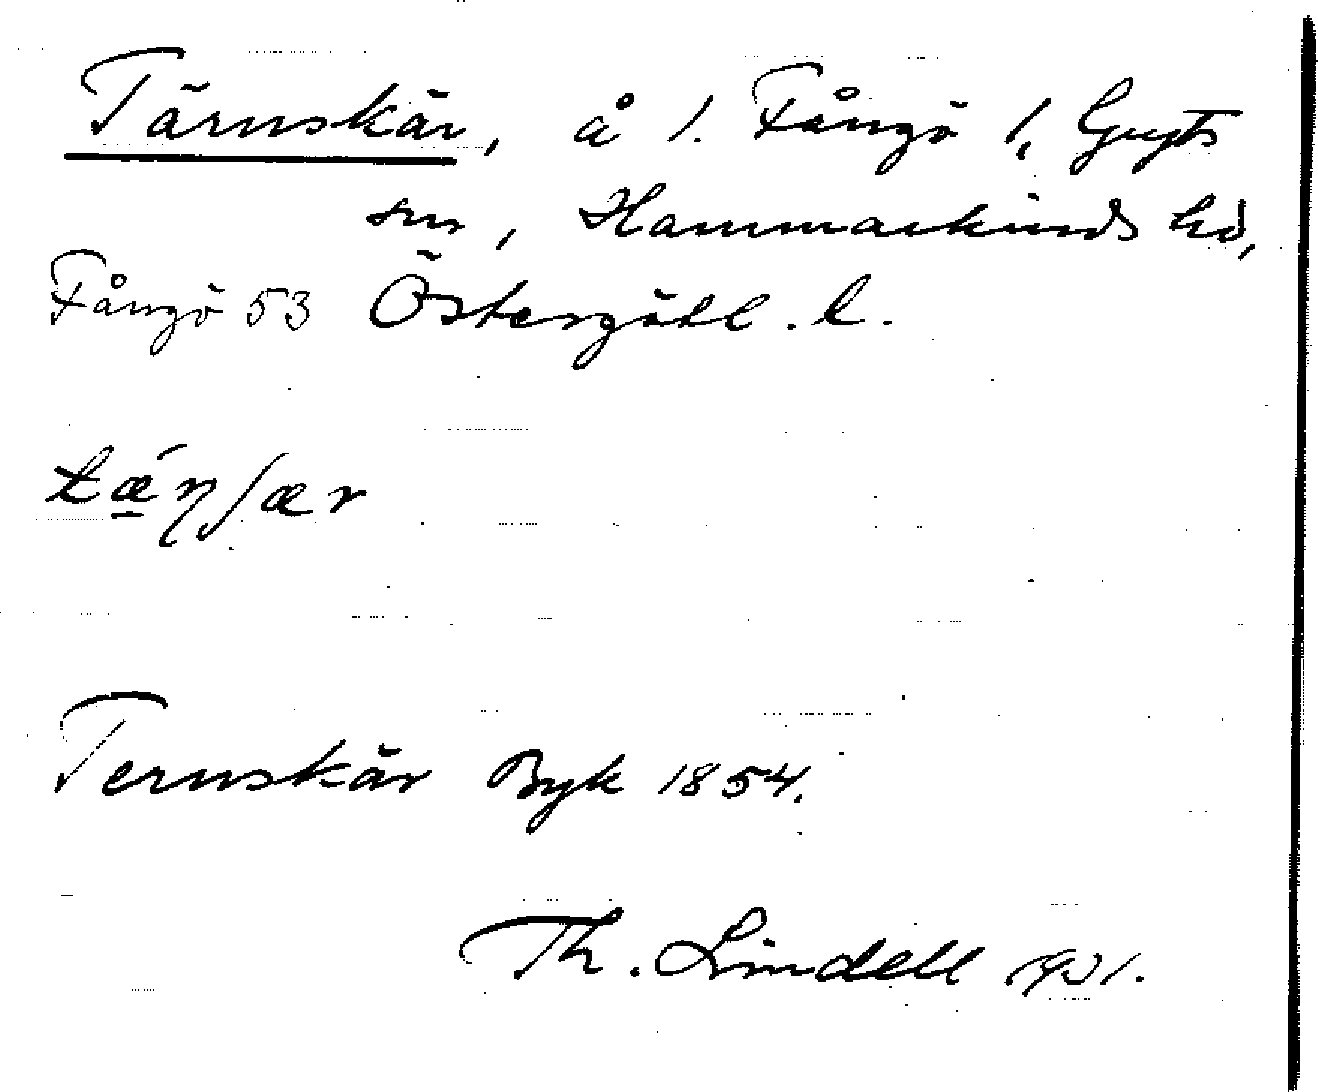 Tärnskär, å l. Fångö 1, Gryts
sn, Hammarkinds hd,
Fångö 53 Östergötl. l.
tǽ̲ŋʃær
Ternskär Byk 1854.
Th. Lindell 1931.